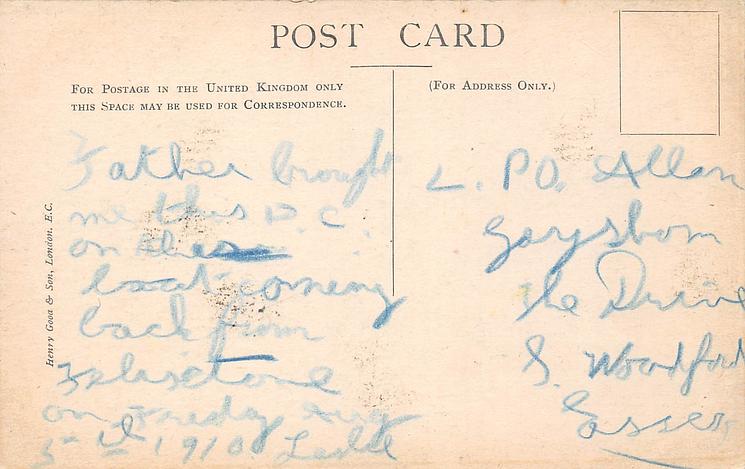 POST CARD
FOR POSTAGE IN THE UNITED KINGDOM ONLY
THIS SPACE MAY BE USED FOR CORRESPONDENCE.
(FOR ADDRESS ONLY.)
Henry Good & Son, London, E.C.
Father brought
me this P.C.
on the
boat coming
back from
on Friday Aug
5th 1910 Leslie
L. P.O. Allan
The Drive
S. Woodford
Essex